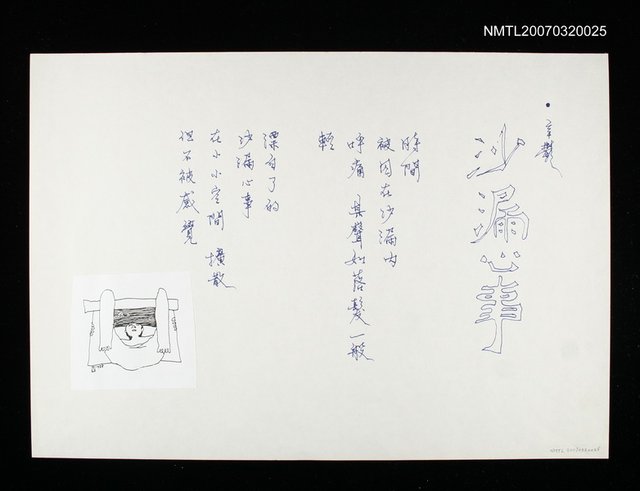 NMTL20070320025
•辛鬱
沙漏心事
時間
被囚在沙漏內
呼痛 其聲如落髮一般
輕
漂白了的
沙漏心事
在小小空間 擴散
但不被感覺
NMTL20070320025